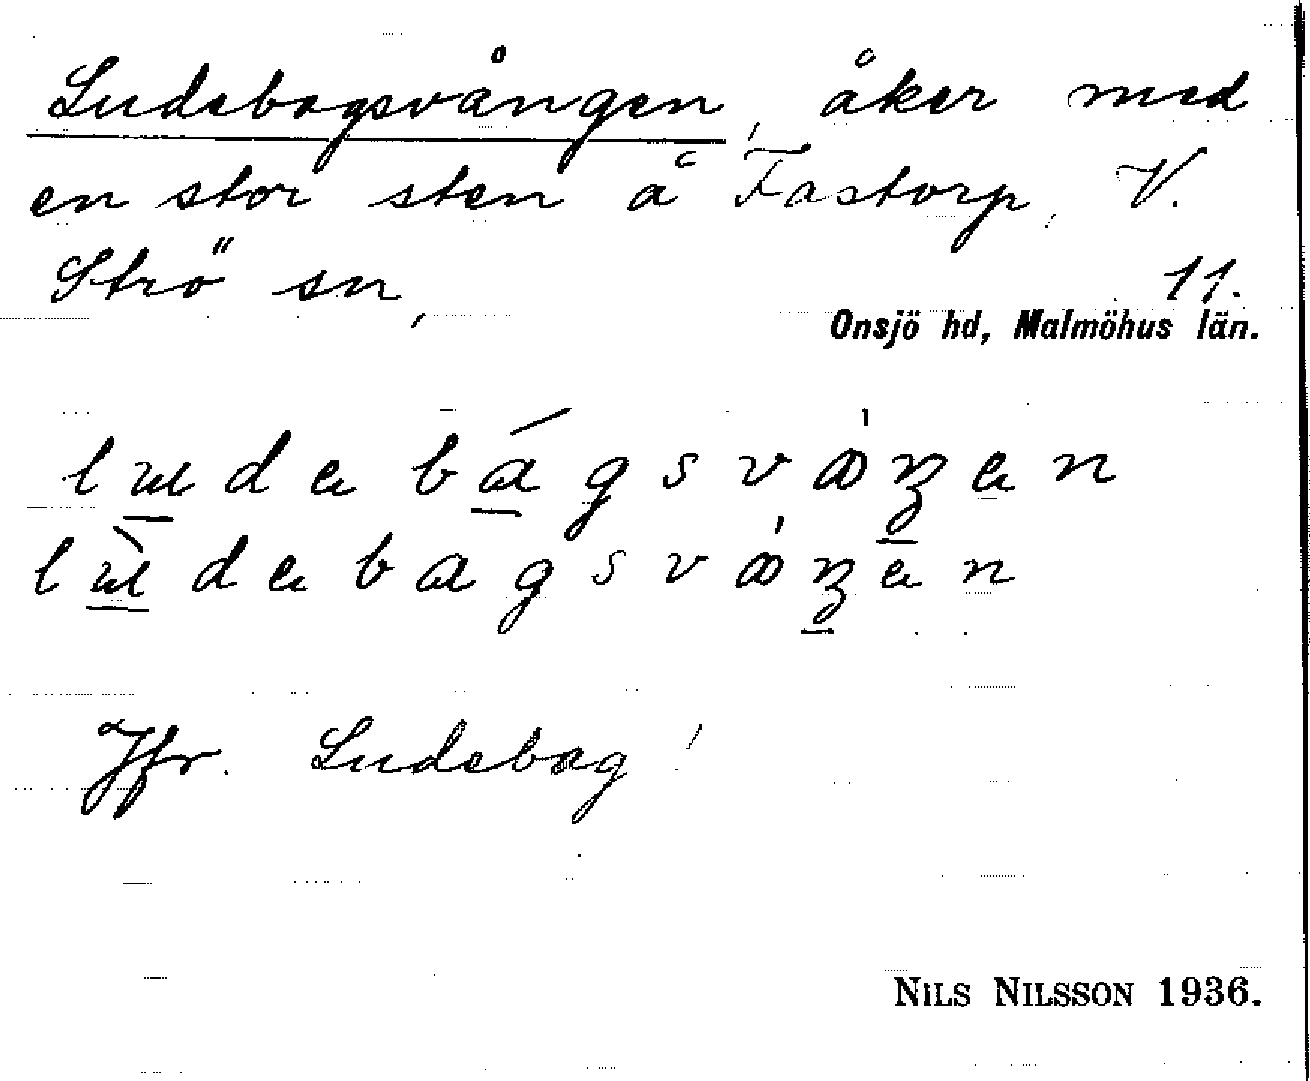 Ludebagsvången, åker med
en stor sten å Fastorp, V.
Strö sn,
11.
Onsjö hd, Malmöhus län.
Jfr. Ludebag!
NILS NILSSON 1936.